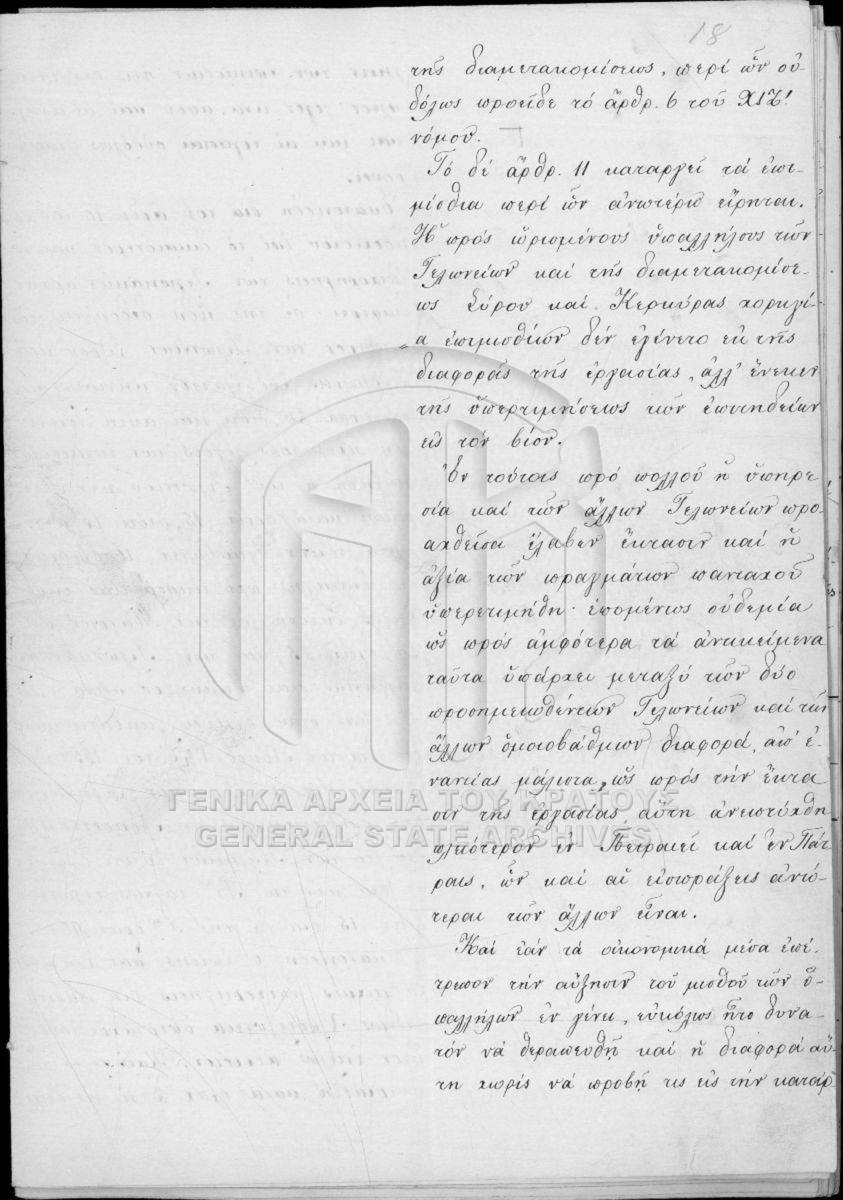 18
τῆς διαμετακομίσεως, περὶ ὧν οὐ-
δόλως προεῖδε τό ἄρθρ. 6 τοῦ ΧΙΖ!
νόμου.
Τό δέ ἄρθρ. 11 καταργεῖ τά ἐπι-
μίσθια περί ὧν ἀνωτέρω εἴρηται.
Ἡ πρός ὡρισμένους ὑπαλλήλους τῶν
Τελωνείων καί τῆς διαμετακομίσε-
ως Σύρου καί Κερκύρας χορηγί-
α ἐπιμισθίων δέν ἐγένετο ἐκ τῆς
διαφορᾶς τῆς ἐργασίας, ἀλλ' ἕνεκεν
τῆς ὑπερτιμήσεως τῶν ἐπιτηδείων
εἰς τόν βίον.
Ἐν τούτοις πρό πολλοῦ ἡ ὑπηρε-
σία καί τῶν ἄλλων Τελωνείων προ-
αχθεῖσα ἔλαβεν ἔκτασιν καί ἡ
ἀξία τῶν πραγμάτων πανταχοῦ
ὑπερετιμήθη· ἑπομένως οὐδεμία
ὡς πρός ἀμφότερα τά ἀντικείμενα
ταῦτα ὑπάρχει μεταξύ τῶν δύο
προσημειωθέντων Τελωνείων καί τῶν
ἄλλων ὁμοιοβάθμων διαφορά, ἀπ' ἐ-
ναντίας μάλιστα, ὡς πρός τήν ἔκτα
σιν τῆς ἐργασίας, αὕτη ἀνεπτύχθη
πλειότερον ἐν Πειραιεῖ καί ἐν Πάτ-
ραις, ὧν καί αἱ εἰσπράξεις ἀνώ-
τεραι τῶν ἄλλων εἶναι.
Καί ἐάν τά οἰκονομικά μέσα ἐπέ-
τρεπον τήν αὔξησιν τοῦ μισθοῦ τῶν ὑ-
παλλήλων ἐν γένει, εὐκόλως ἦτο δυνα-
τόν νά θεραπευθῇ καί ἡ διαφορά αὕ-
τη χωρίς νά προβῇ τις εἰς τήν κατάρ
ΓΕΝΙΚΑ ΑΡΧΕΙΑ ΤΟΥ ΚΡΑΤΟΥΣ
GENERAL STATE ARCHIVES